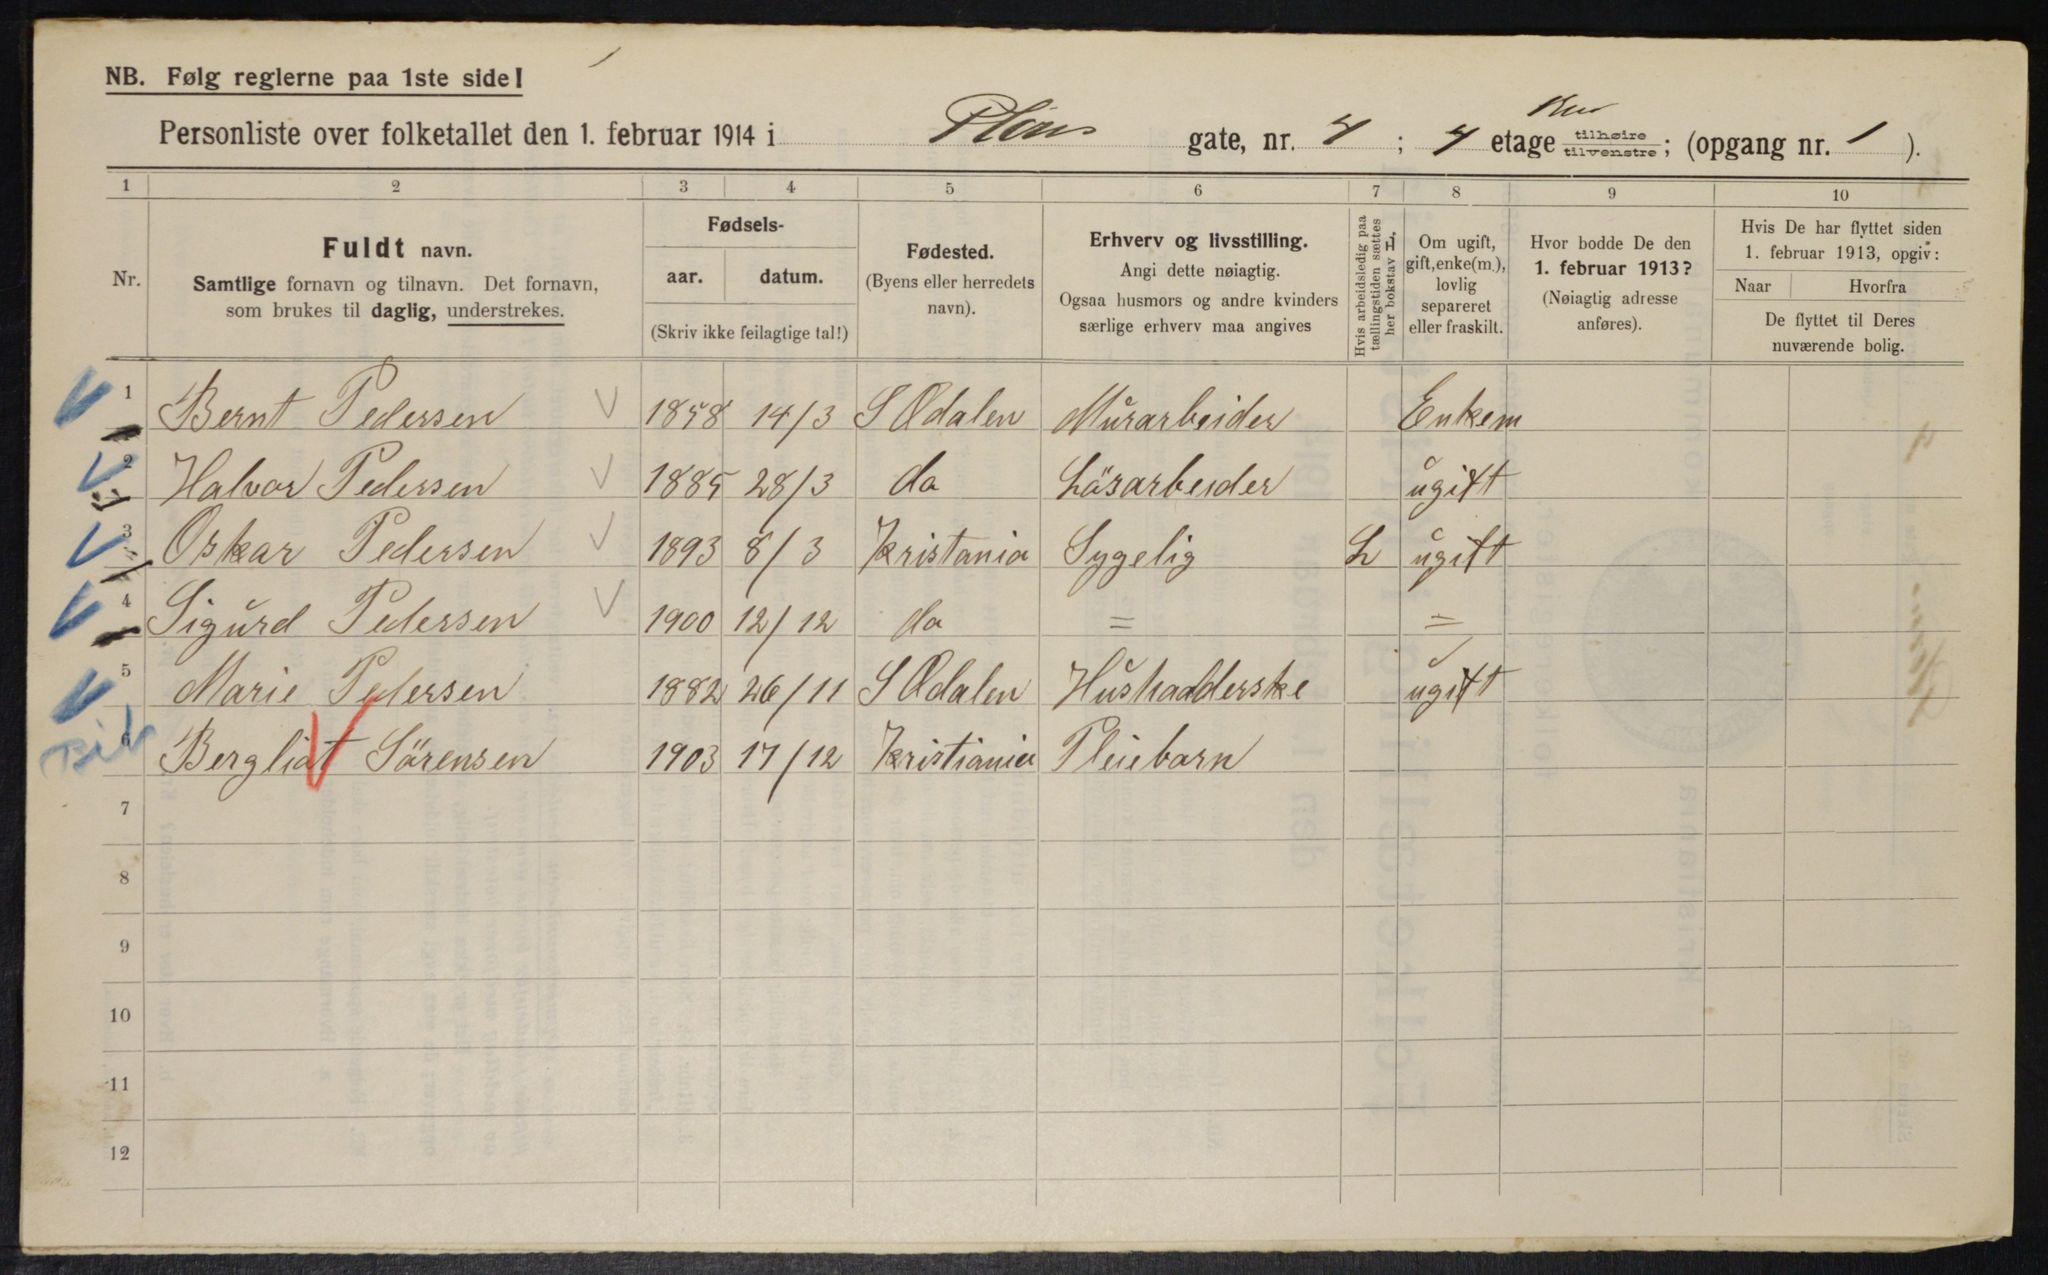 NB. Følg reglerne paa 1ste side!
Personliste over folketallet den 1. februar 1914 i Pløens gate, nr. 4; 4 etage tilhøire tilvenstre; (opgang nr. 1).
1 2 3 4 5 6 7 8 9 10
Nr.
Fuldt navn.
Samtlige fornavn og tilnavn. Det fornavn,
som brukes til daglig, understrekes.
Fødsels-
aar. datum.
(Skriv ikke feilagtige tal!)
Fødested.
(Byens eller herredets
navn).
Erhverv og livsstilling.
Angi dette nøiagtig.
Ogsaa husmors og andre kvinders
særlige erhverv maa angives
Hvis arbeidsledig paa
tællingstiden sættes
her bokstav L.
Om ugift,
gift, enke(m.),
lovlig
separeret
eller fraskilt.
Hvor bodde De den
1. februar 1913?
(Nøiagtig adresse
anføres).
Hvis De har flyttet siden
1. februar 1913, opgiv:
Naar Hvorfra
De flyttet til Deres
nuværende bolig.
1 Bernt Pedersen 1858 14/3 S Ødalen Murarbeider Enkem
2 Halvor Pedersen 1885 28/3 do Lösarbeider ugift
3 Oskar Pedersen 1893 8/3 Kristania Sygelig L ugift
4 Sigurd Pedersen 1900 12/12 do = =
5 Marie Pedersen 1882 26/11 S Ødalen Hushadderske ugift
6 Bergliot Sörensen 1903 17/12 Kristiania Pleiebarn
7
8
9
10
11
12